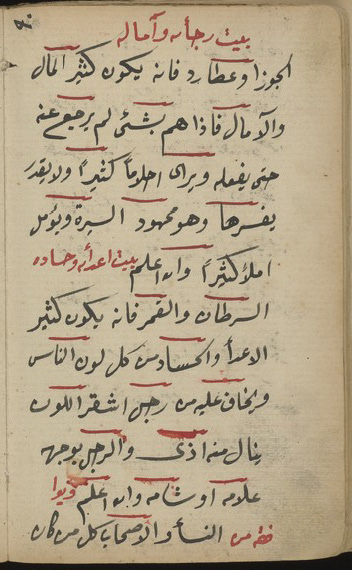 بيت رجأىه وآماله
الجوزا وعطارد فانه يكون كثير المال
والآمال فاذا هم بشئ لم يرجع عنه
حتى يفعله ويرى احلاماً كثيراً ولا يقدر
يفسرها وهو محمود السيرة ويؤمل
املاً كثيراً والله اعلم بيت اعدأىه وحساده
السرطان والقمر فانه يكون كثير
الاعدأ والحساد من كل لون الناس
ويخاف عليه من رجل اشقر اللون
ينال منه اذى والرجل بوجهه
علامه او شامه والله اعلم ويوا
فقه من النسأ والاصحاب كل من كان